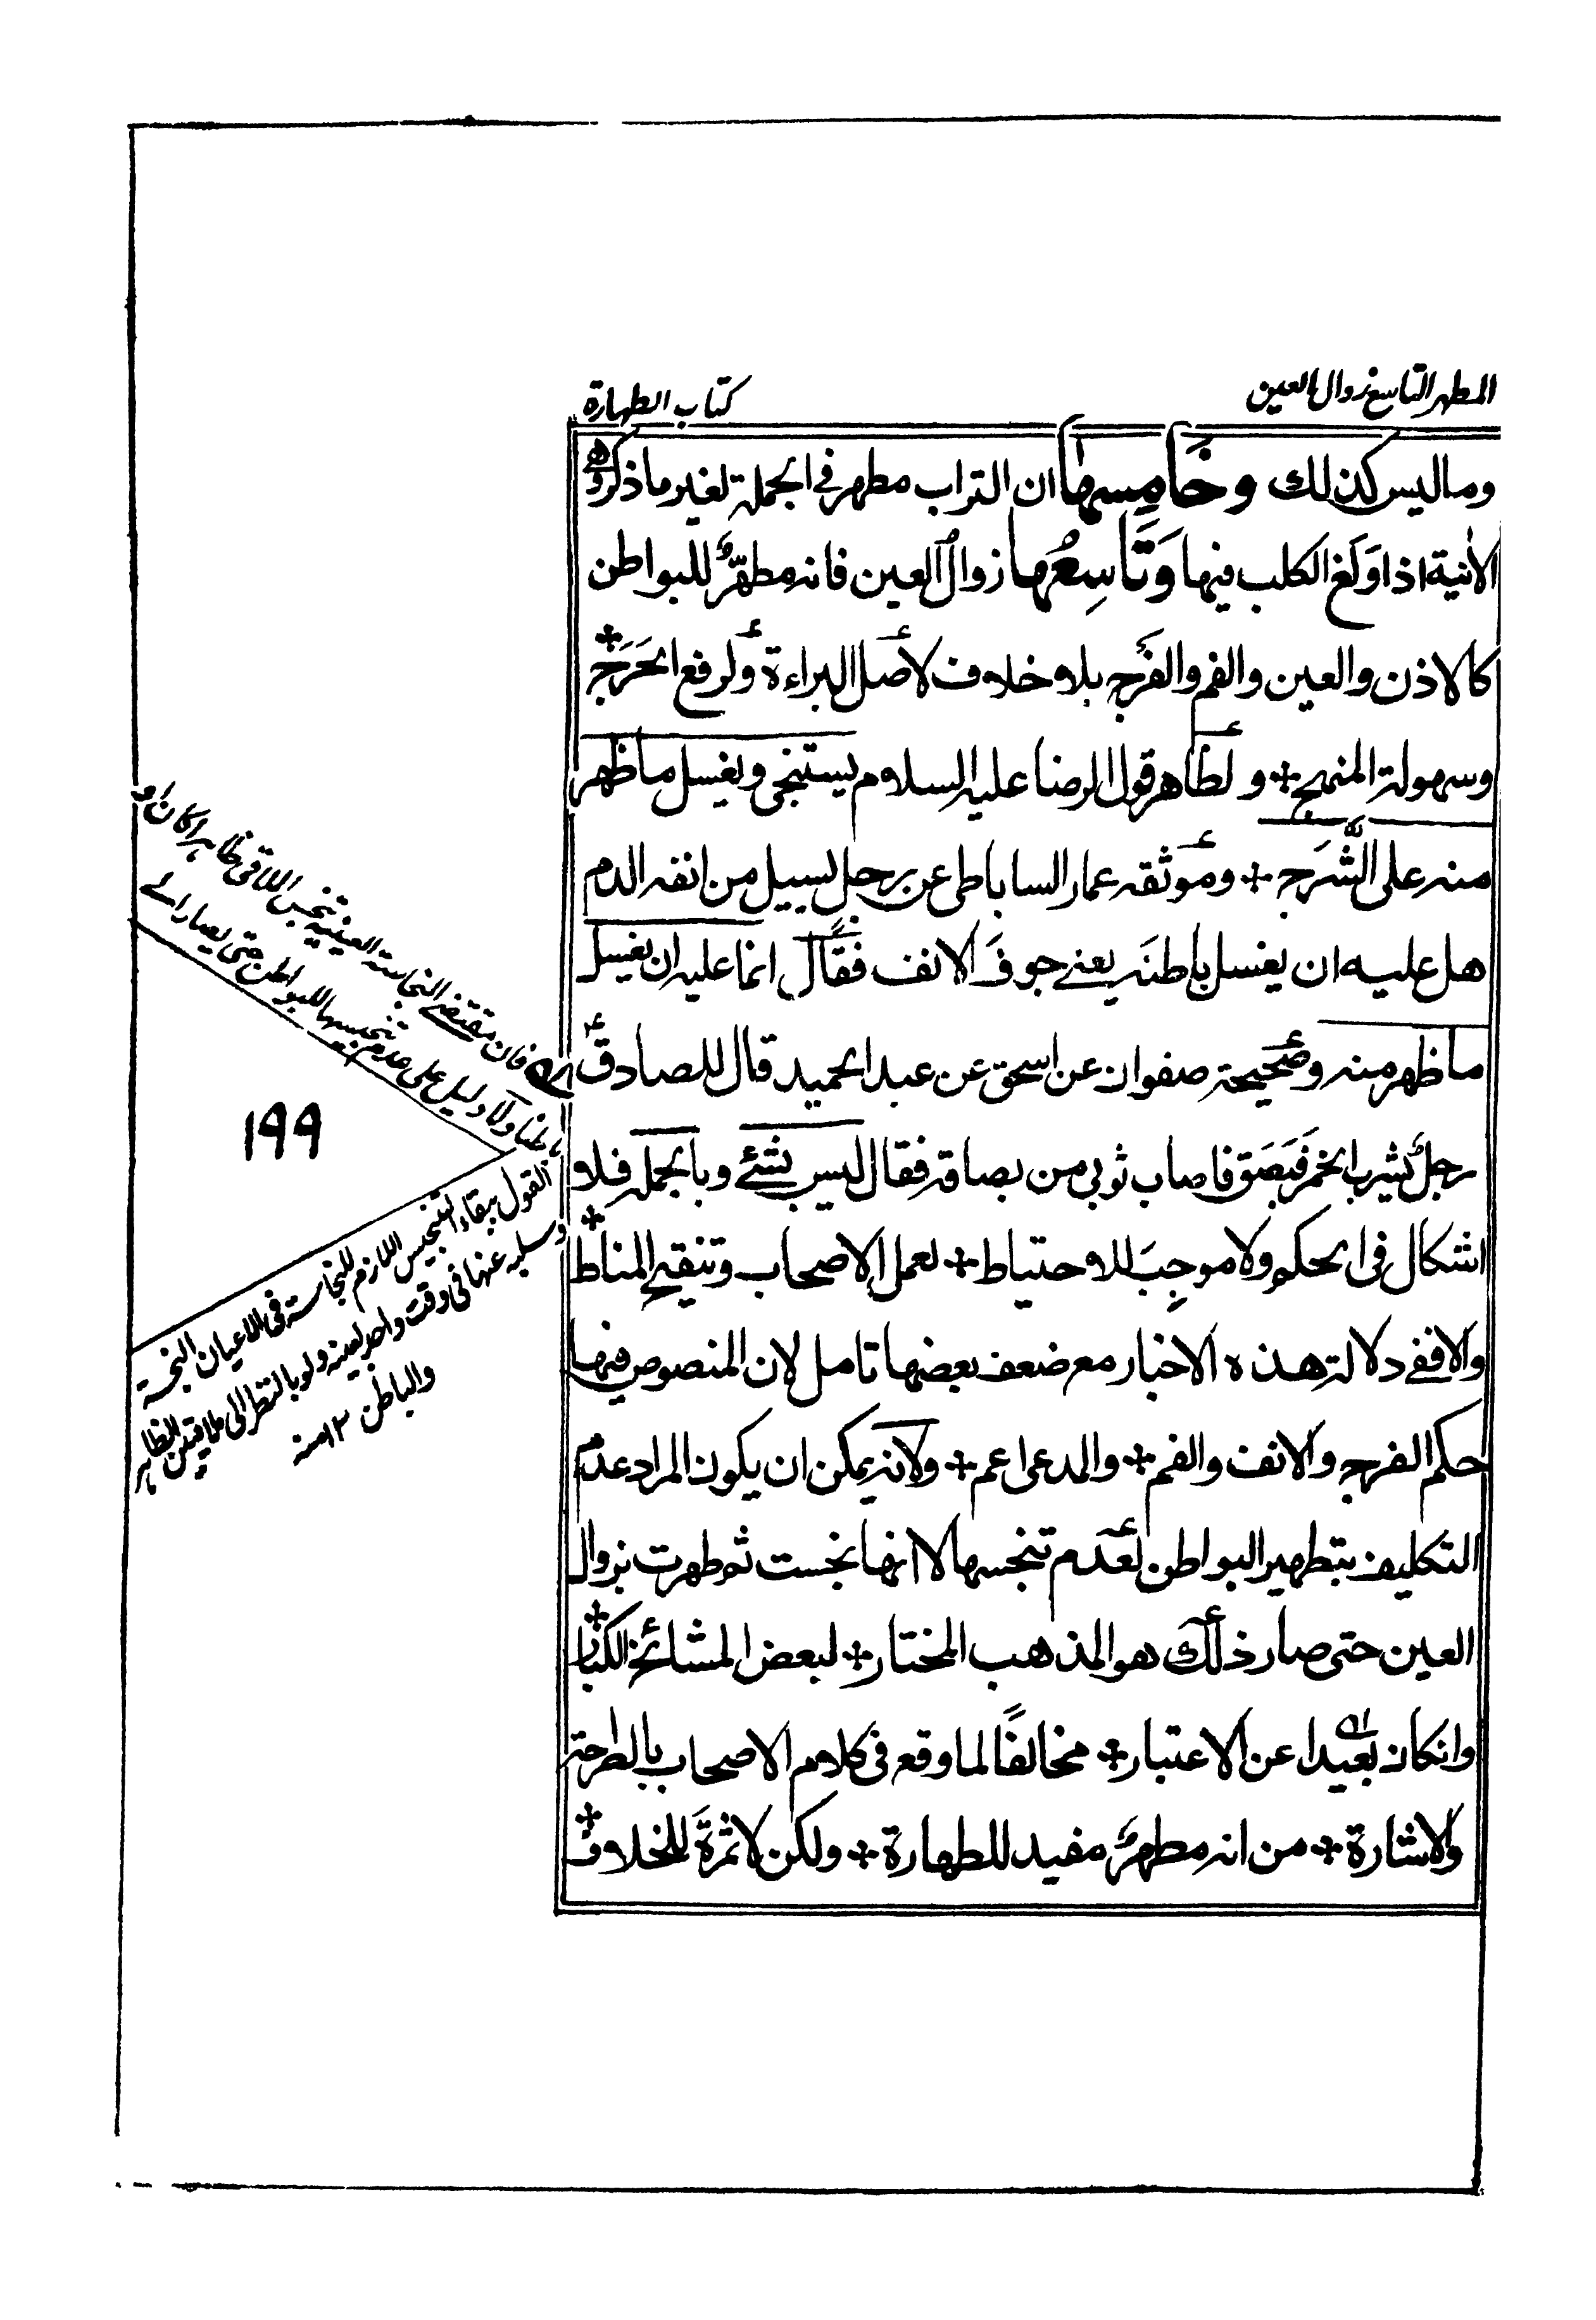 المطهر التاسع زوال العين
كتاب الطهارة
وما ليس كذلك وخَامِسهَا ان التراب مطهر في الجملة لغير ما ذكروه
الآنية اذا وَلَغ الكلب فيها وَتَاسِعُهَا زوال العين فانه مطهّرٌ للبواطن
كالاذن والعين والفم والفَرْج بلا خلاف لأصل البراءة ولرفع الحَرَج ❊
وسهولة المنهج ❊ ولظاهر قول الرضا عليه السلام يستنجي ويغسل ما ظهر
منه على الشَّرَج ❊ وموثقه عمار الساباطي عن رجل يسيل من انفه الدم
هل عليه ان يغسل باطنَه يعني جوفَ الانف فقَالَ انما عليه ان يغسل
ما ظهر منه وصحيحة صفوان عن اسحق عن عبد الحميد قال للصادقؑ
رجلٌ يشرب الخمر فَيَبصَق فاصاب ثوبي من بصاقه فقال ليس بشئے وبالجملہ فلا
اشكال في الحكم ولا موجِبَ للاحتياط ❊ لعمل الاصحاب وتنقيح المناط ❊
والا ففے دلالة هذه الاخبار مع ضعف بعضها تامل لان المنصوص فيها
حكم الفرج والانف والفم ❊ والمدعى اعم ❊ ولانه يمكن ان يكون المراد عدم
التكليف بتطهير البواطن لعَدَم تنجسها لا انها نجست ثم طهرت بزوال
العين حتى صار ذلك هو المذهب المختار ❊ لبعض المشائخ الكبار ❊
وانكان بعيدا عن الاعتبار ❊ مخالفًا لما وقع في كلام الاصحاب بالصراحة
والاشارة ❊ من انه مطهرٌ مفيد للطهارة ❊ ولكن لا ثمرةَ للخلاف ❊
فان مقتضے النجاسة العينية تنجس الملاقي ظاهرا كان او
باطنا ولا دليل على عدم تنجيسها للبواطن حتى يصار الے
١٩٩
القول ببقاء التنجيس اللازم للنجاسة في الاعيان النجسة
وسلبه عنها في وقت واحد بعينه ولو بالنظر الى ملاقيين الظاهر
والباطن ١٢ منه